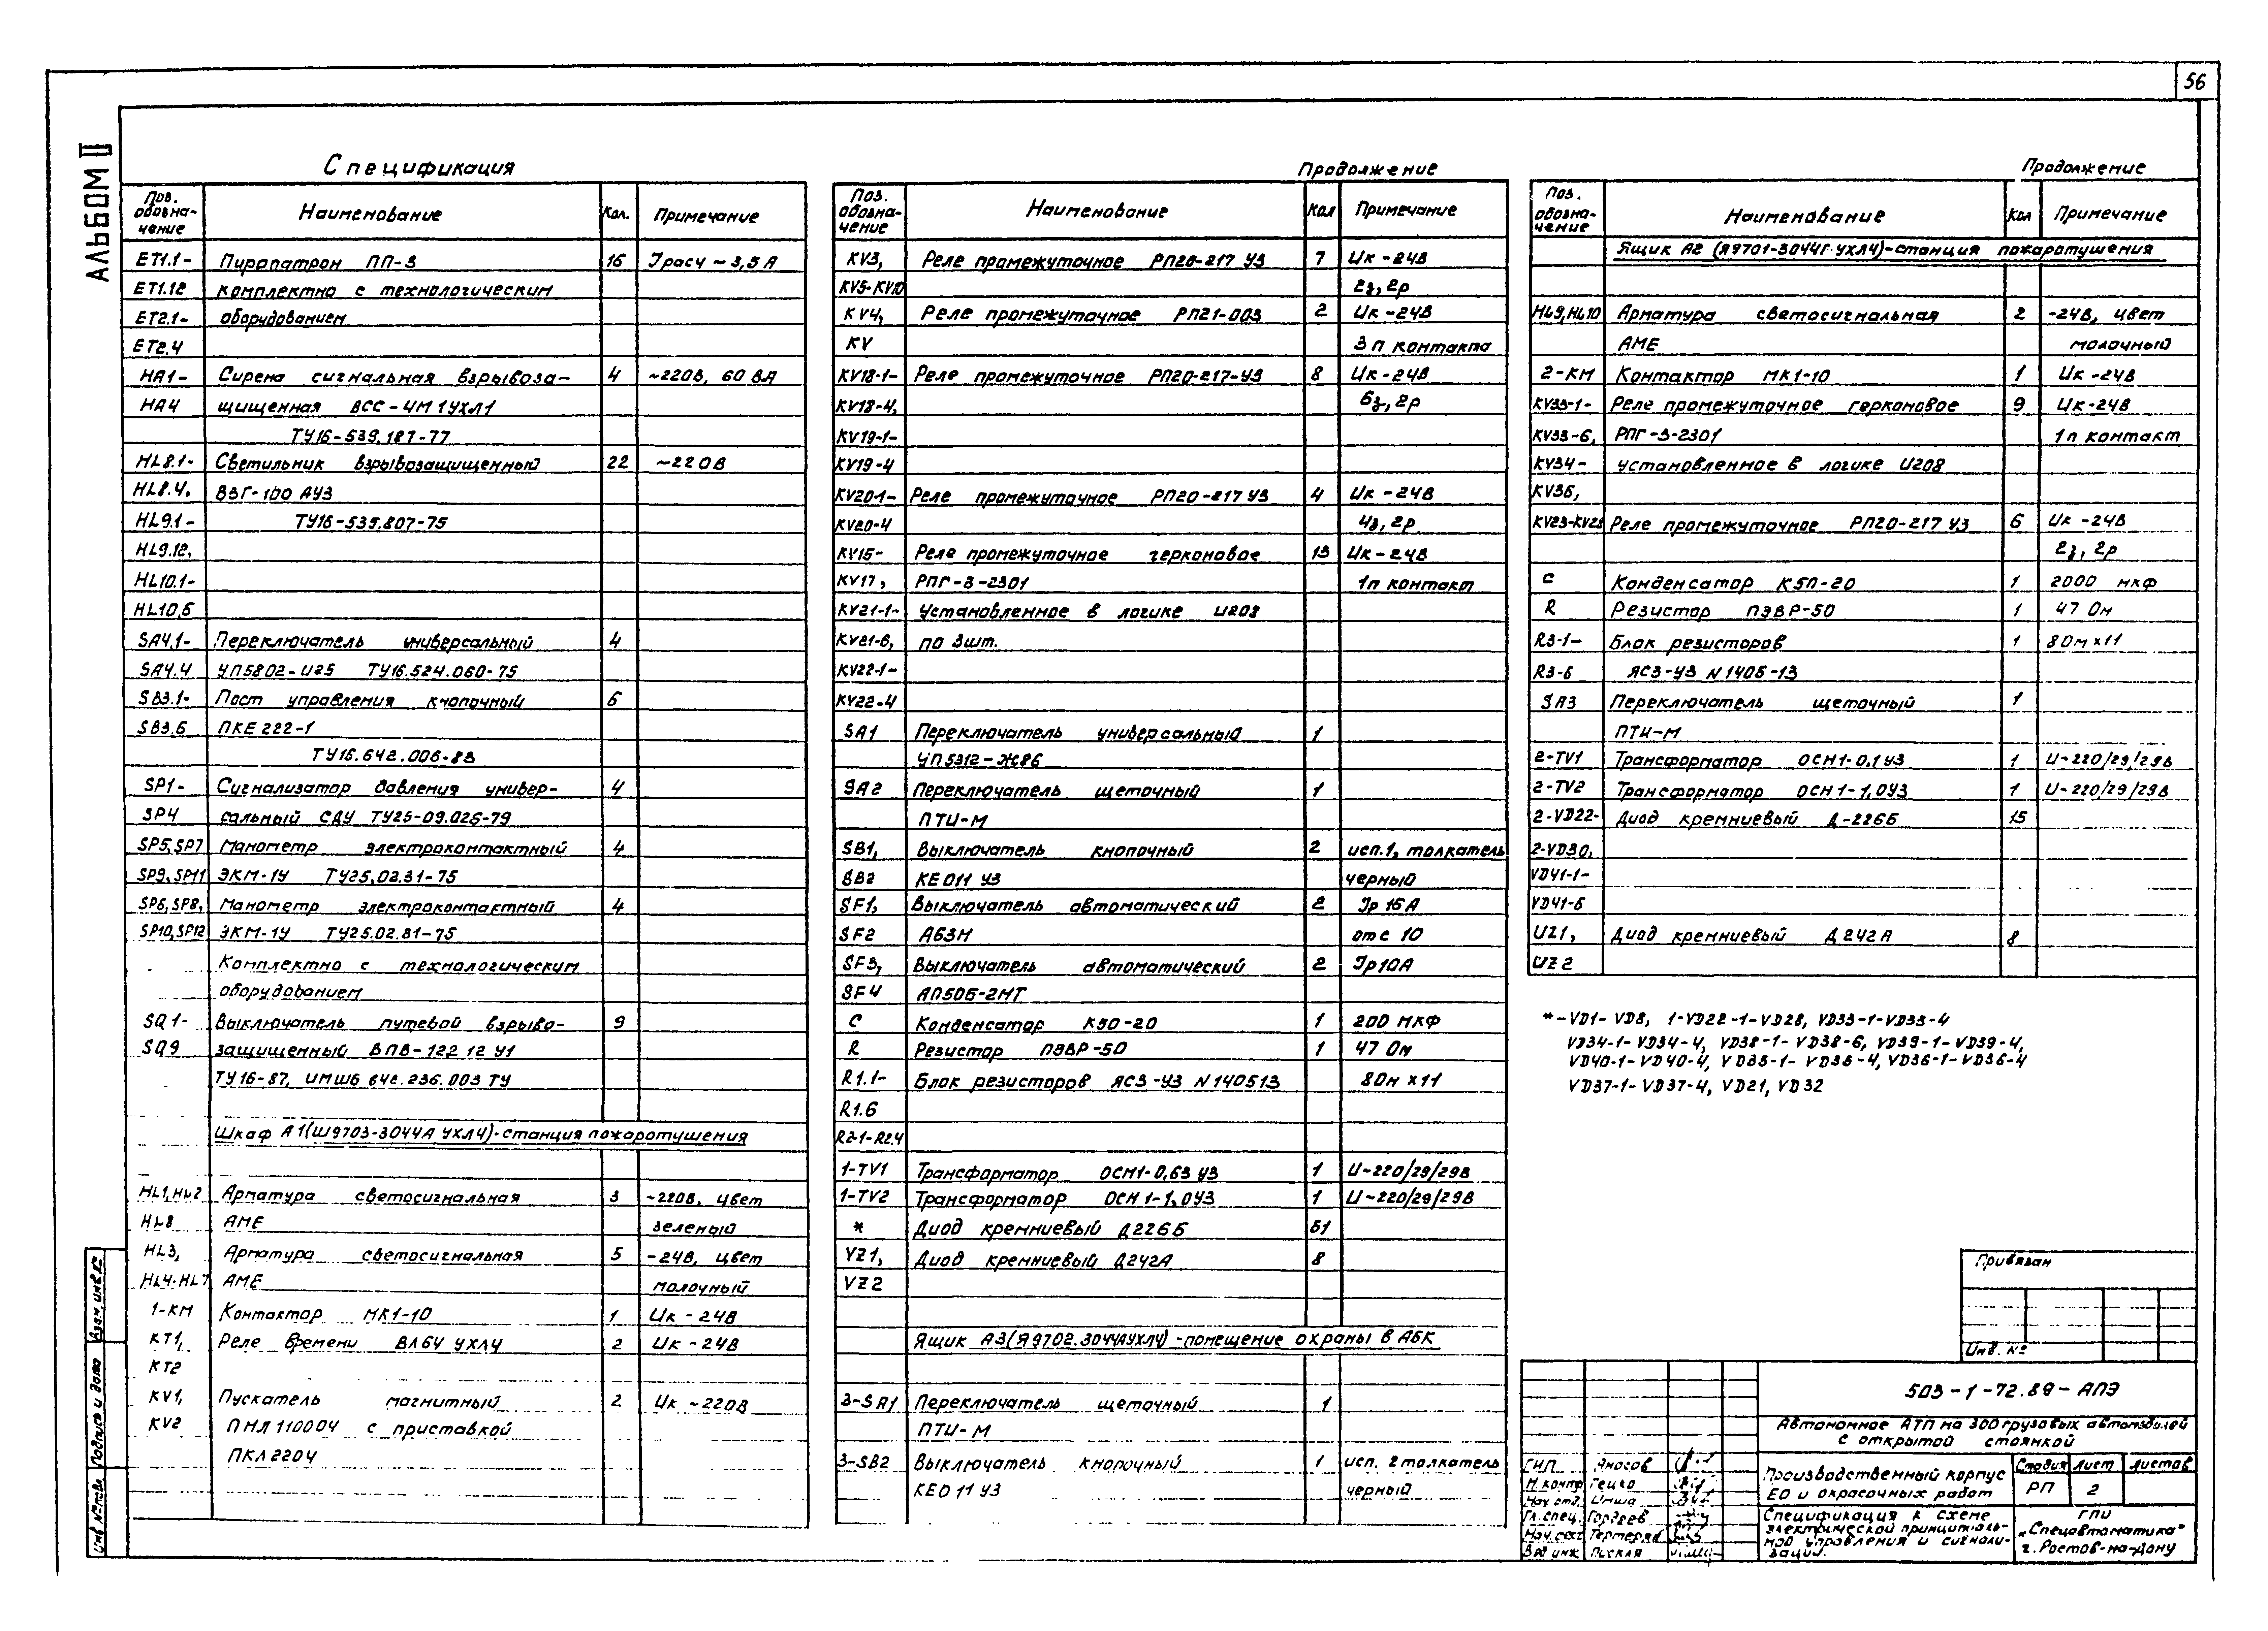 56
АЛЬБОМ II
Спецификация
Поз. обозна-чение Наименование Кол. Примечание
ET1.1- Пиропатрон ПП-3 16 Jрасч ~3,5А
ET1.12 комплектно с технологическим
ET2.1- оборудованием
ET2.4
HA1- Сирена сигнальная взрывоза- 4 ~220В, 60 ВА
HA4 щищенная ВСС-4М 1УХЛ1
ТУ16-539.187-77
HL8.1- Светильник взрывозащищенный 22 ~220В
HL8.4, ВЗГ-100 АУ3
HL9.1- ТУ16-535.807-75
HL9.12,
HL10.1-
HL10,6
SA4,1- Переключатель универсальный 4
SA4.4 УП5802-И25 ТУ16.524.060-75
SB3.1- Пост управления кнопочный 6
SB3.6 ПКЕ 222-1
ТУ16.642.006-83
SP1- Сигнализатор давления универ- 4
SP4 сальный СДУ ТУ25-09.026-79
SP5,SP7 Манометр электроконтактный 4
SP9,SP11 ЭКМ-1У ТУ25.02.31-75
SP6,SP8, Манометр электроконтактный 4
SP10,SP12 ЭКМ-1У ТУ25.02.31-75
Комплектно с технологическим
оборудованием
SQ1- Выключатель путевой взрыво- 9
SQ9 защищенный ВПВ-122 12 У1
ТУ16-87, ИМШБ 642.236.003 ТУ
Шкаф А1(Ш9703-3044А УХЛ4)-станция пожаротушения
HL1,HL2 Арматура светосигнальная 3 ~220В, цвет
HL8 АМЕ зеленый
HL3, Арматура светосигнальная 5 -24В, цвет
HL4-HL7 АМЕ молочный
1-KM Контактор МК1-10 1 Uк -24В
KT1, Реле времени ВЛ64 УХЛ4 2 Uк -24В
KT2
KV1, Пускатель магнитный 2 Uк ~220В
KV2 ПМЛ 110004 с приставкой
ПКЛ 2204
Продолжение
Поз. обозна-чение Наименование Кол Примечание
KV3, Реле промежуточное РП20-217 У3 7 Uк -24В
KV5-KV10 2з, 2р
KV4, Реле промежуточное РП21-003 2 Uк -24В
KV 3 п контакта
KV18-1- Реле промежуточное РП20-217-У3 8 Uк -24В
KV18-4, 6з, 2р
KV19-1-
KV19-4
KV20-1- Реле промежуточное РП20-217 У3 4 Uк -24В
KV20-4 4з, 2р
KV15- Реле промежуточное герконовое 13 Uк -24В
KV17, РПГ-3-2301 1п контакт
KV21-1- Установленное в логике И208
KV21-6, по 3шт.
KV22-1-
KV22-4
SA1 Переключатель универсальный 1
УП5312-Ж86
SA2 Переключатель щеточный 1
ПТИ-М
SB1, Выключатель кнопочный 2 исп.1, толкатель
SB2 КЕ 011 У3 черный
SF1, Выключатель автоматический 2 Jр 16А
SF2 А63М отс 10
SF3, Выключатель автоматический 2 Jр 10А
SF4 АП50Б-2МТ
C Конденсатор К50-20 1 200 мкф
R Резистор ПЭВР-50 1 47 Ом
R1.1- Блок резисторов ЯС3-У3 N140513 8Ом х11
R1.6
R2-1-R2.4
1-TV1 Трансформатор ОСМ1-0,63 У3 1 U~220/29/29В
1-TV2 Трансформатор ОСМ 1-1,0У3 1 U~220/29/29В
* Диод кремниевый Д226Б 61
VZ1, Диод кремниевый Д242А 8
VZ2
Ящик А3(Я9702.3044АУХЛ4)-помещение охраны в АБК
3-SA1 Переключатель щеточный 1
ПТИ-М
3-SB2 Выключатель кнопочный 1 исп. 2 толкатель
КЕ011 У3 черный
Продолжение
Поз. обозна-чение Наименование Кол Примечание
Ящик А2 (Я9701-3044Г.УХЛ4)-станция пожаротушения
HL9,HL10 Арматура светосигнальная 2 -24В, цвет
АМЕ молочный
2-KM Контактор МК1-10 1 Uк -24В
KV33-1- Реле промежуточное герконовое 9 Uк-24В
KV33-6, РПГ-3-2301 1п контакт
KV34- установленное в логике И208
KV36,
KV23-KV28 Реле промежуточное РП20-217 У3 6 Uк -24В
2з, 2р
C Конденсатор К50-20 1 2000 мкф
R Резистор ПЭВР-50 1 47 Ом
R3-1- Блок резисторов 1 8Ом х11
R3-6 ЯС3-У3 N1405-13
SA3 Переключатель щеточный 1
ПТИ-М
2-TV1 Трансформатор ОСМ1-0,1У3 1 U~220/29/29В
2-TV2 Трансформатор ОСМ1-1,0У3 1 U~220/29/29В
2-VD22- Диод кремниевый Д-226Б 15
2-VD30,
VD41-1-
VD41-6
UZ1, Диод кремниевый Д242А 8
UZ2
*-VD1-VD8, 1-VD22-1-VD28, VD33-1-VD33-4
VD34-1-VD34-4, VD38-1-VD38-6, VD39-1-VD39-4,
VD40-1-VD40-4, VD35-1-VD35-4, VD36-1-VD36-4
VD37-1-VD37-4, VD21, VD32
Привязан
Инв. №
503-1-72.89-АПЭ
Автономное АТП на 300 грузовых автомобилей
с открытой стоянкой
Производственный корпус
ЕО и окрасочных работ
Стадия Лист Листов
РП 2
Спецификация к схеме
электрической принципиаль-
ной управления и сигнали-
зации.
ГПИ
"Спецавтоматика"
г. Ростов-на-Дону
ГИП Аносов
Н.контр Гецко
Нач. отд. Имша
Гл.спец. Гордеев
Нач.сект
Вед инж
Взам. инв №
Подпись и дата
Инв № подл